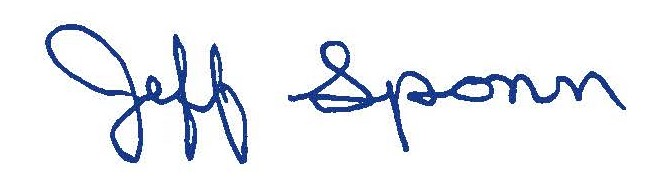 Jeff Sponn